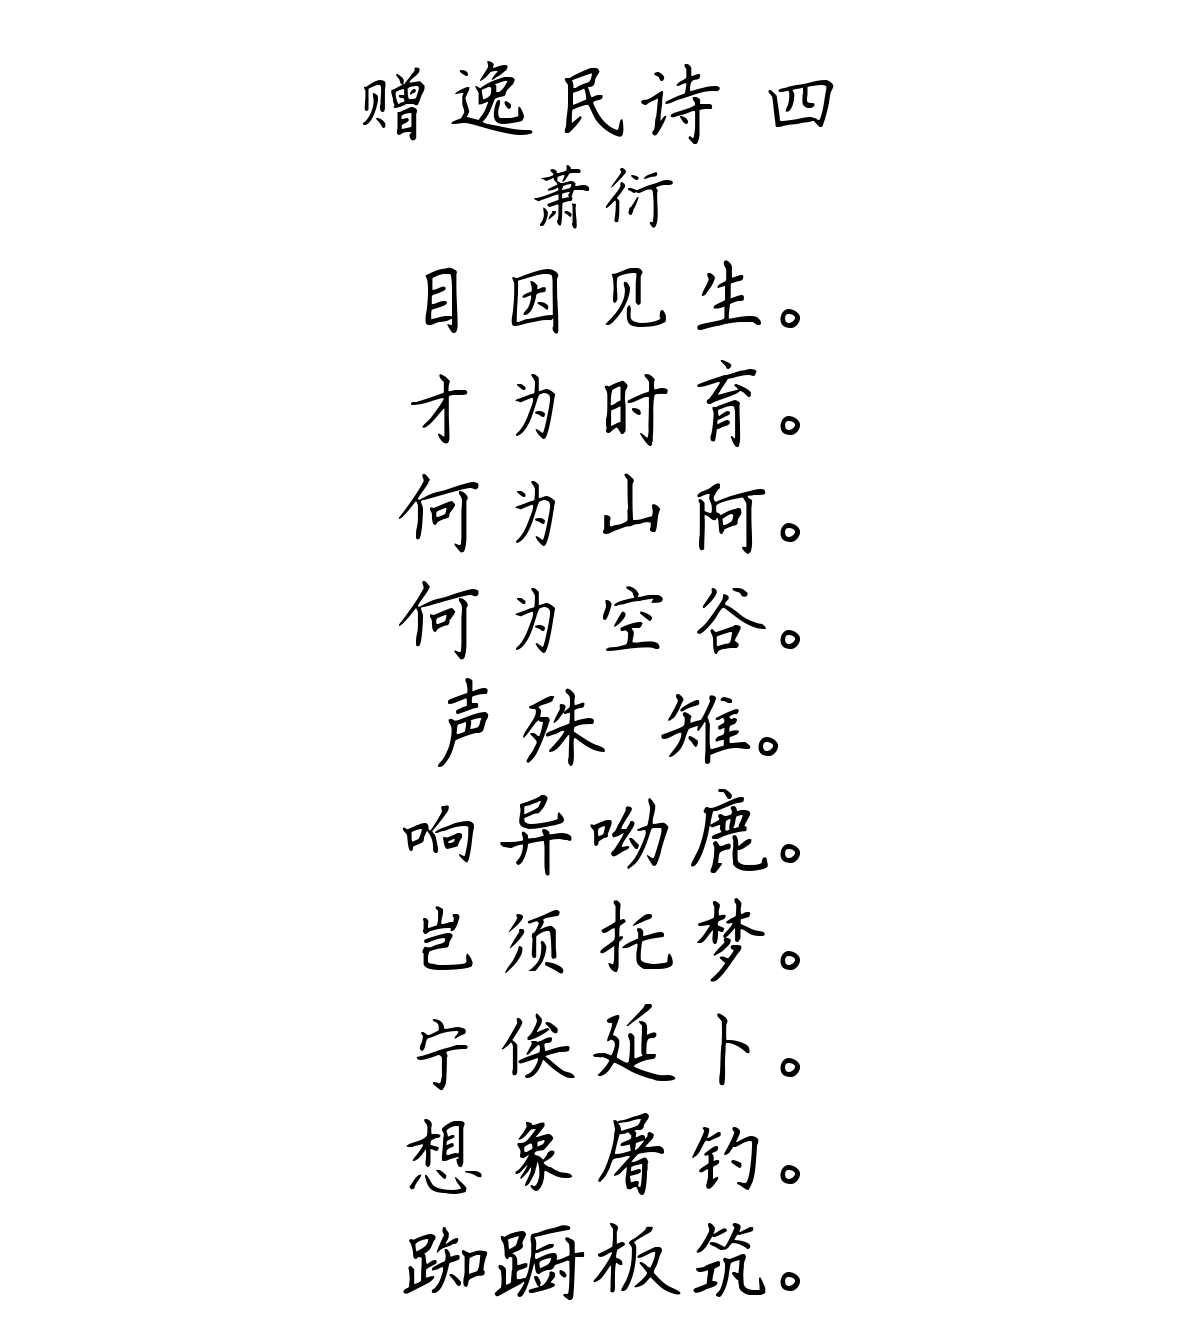 赠逸民诗 四
萧衍
目因见生。
才为时育。
何为山阿。
何为空谷。
声殊 雉。
响异呦鹿。
岂须托梦。
宁俟延卜。
想象屠钓。
踟蹰板筑。